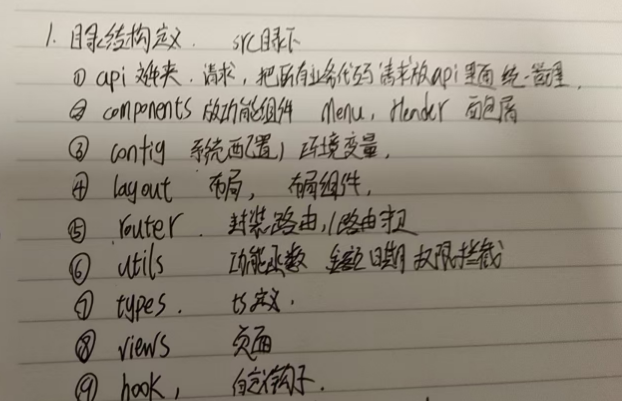 1. 目录结构定义. src目录下
① api 文件夹. 请求, 把所有业务代码请求放api里面统一管理.
② components 放功能组件 Menu, Hender 面包屑
③ config 系统配置, 环境变量.
④ layout 布局, 布局组件.
⑤ router. 封装路由, 路由守卫
⑥ utils 功能函数 金额 日期 权限拦截
⑦ types. ts定义.
⑧ views 页面
⑨ hook, 自定义钩子.